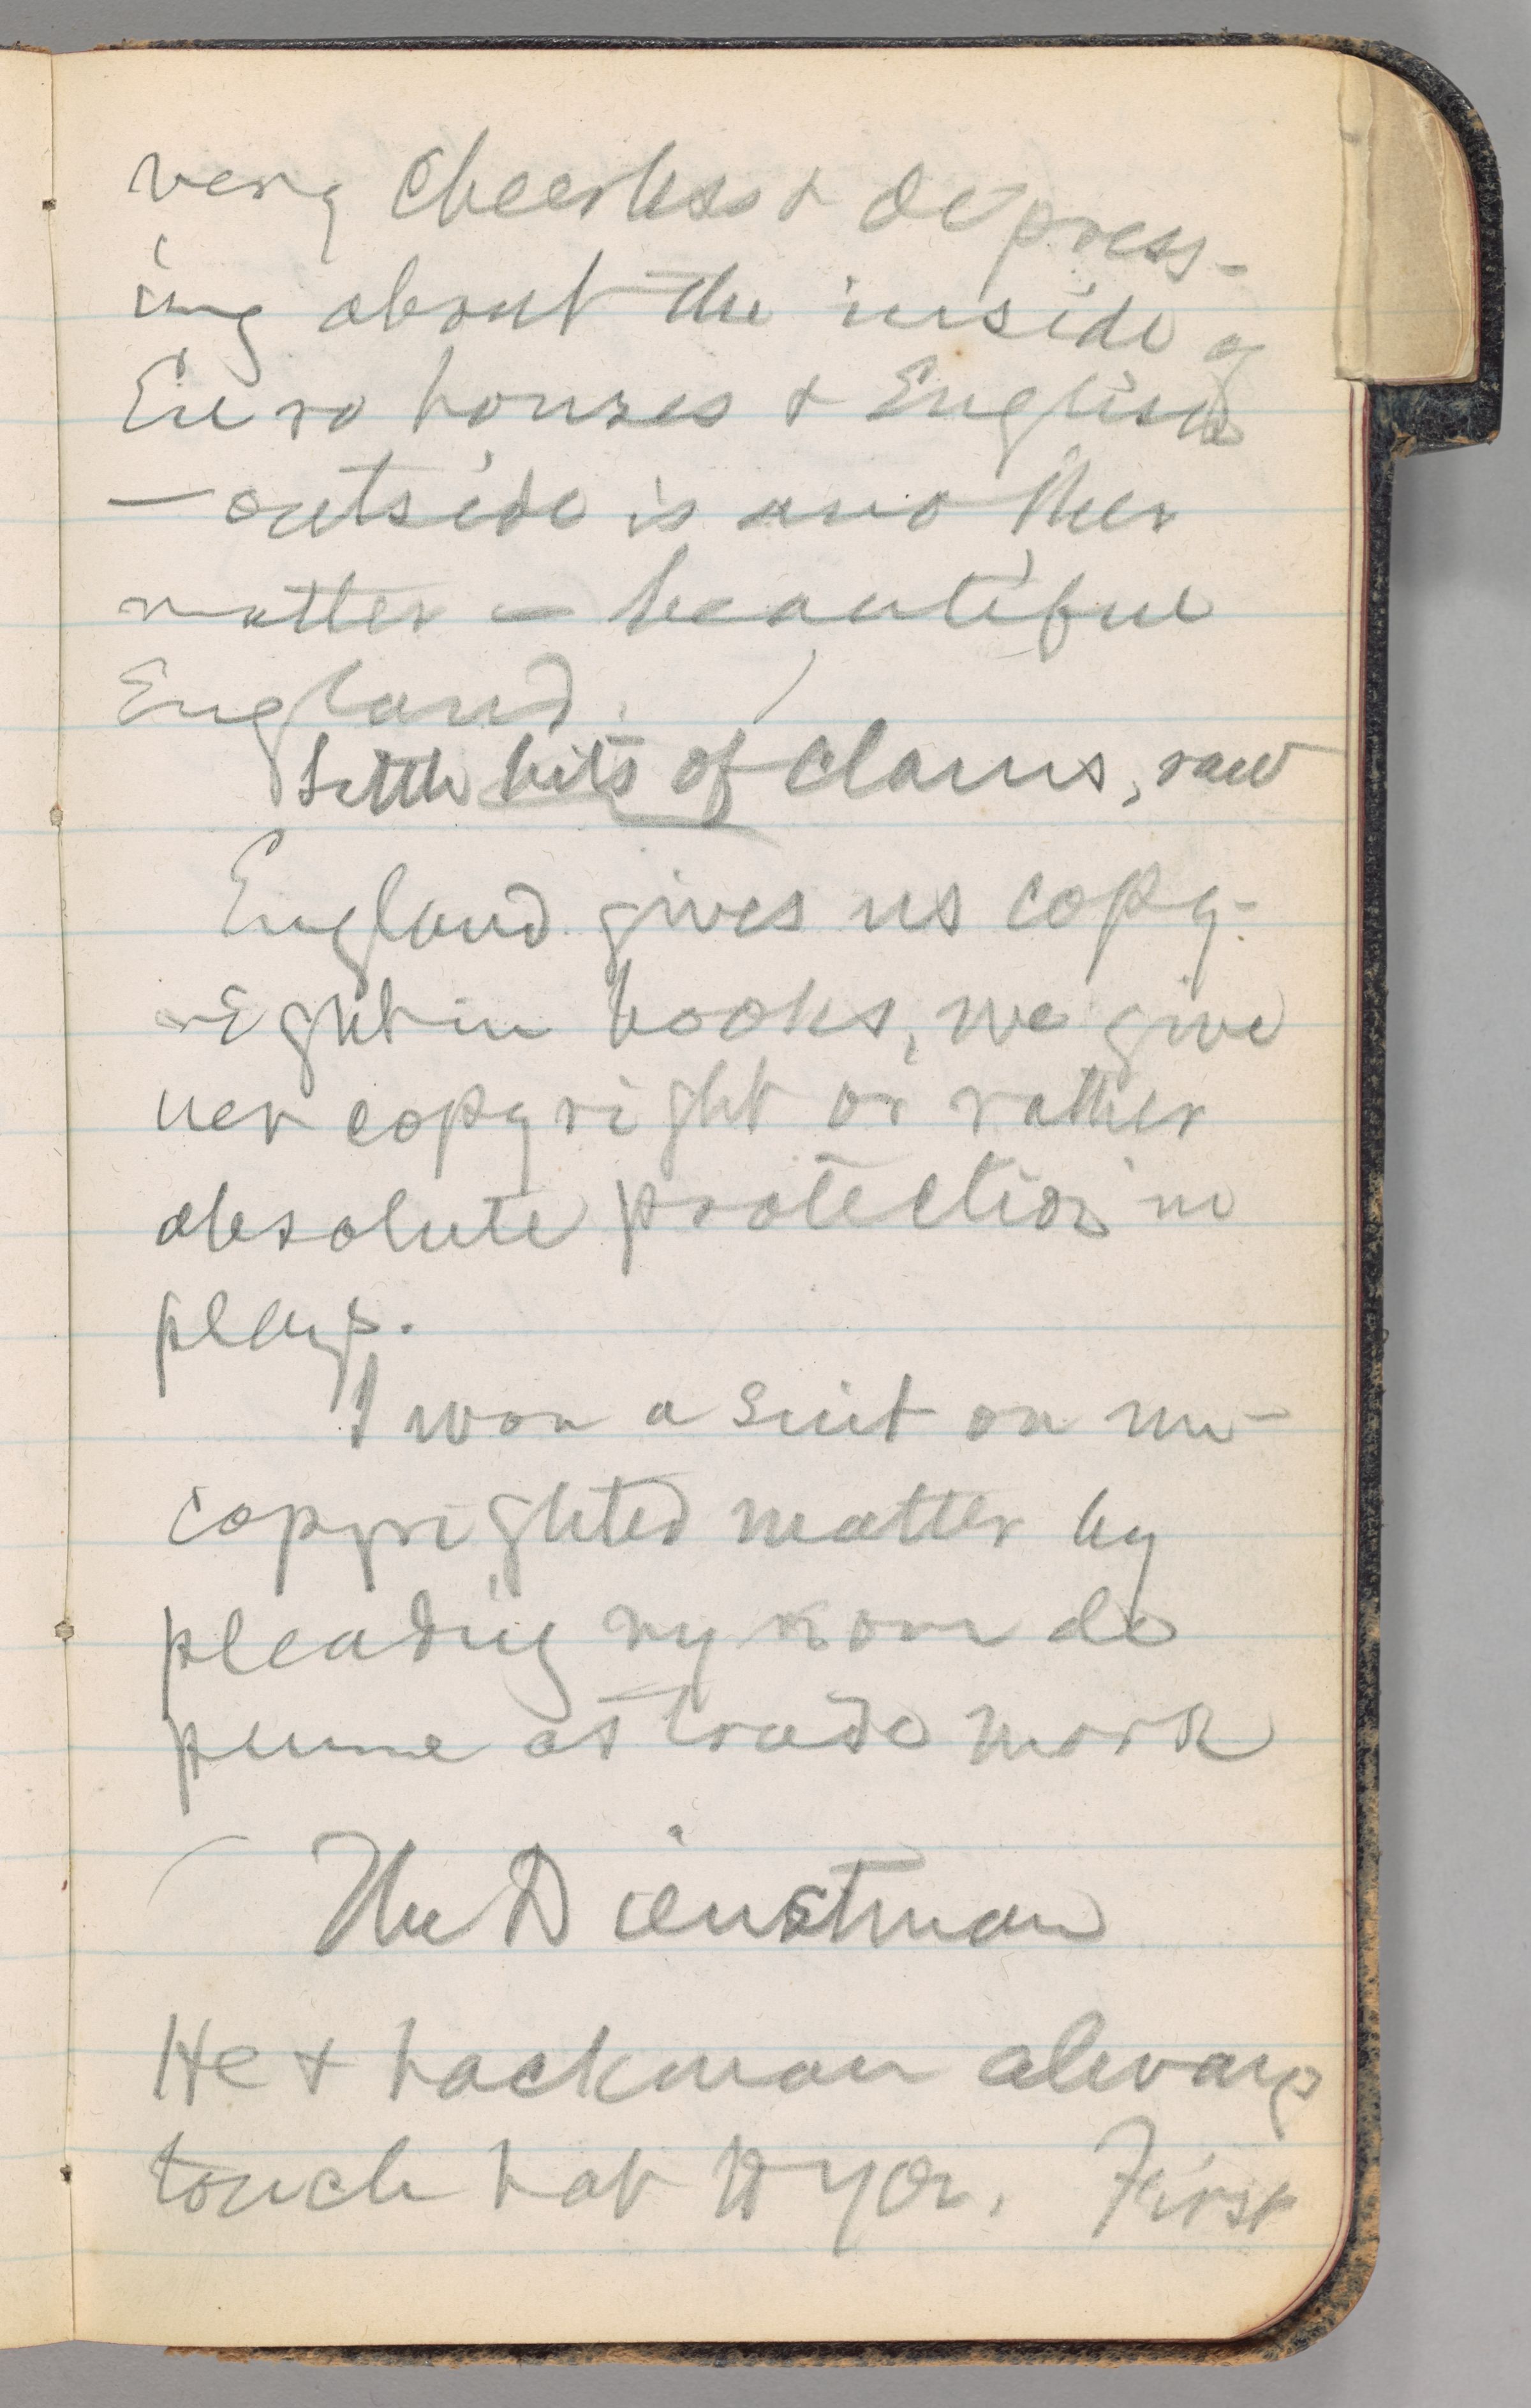 very cheerless & depress-
ing about the inside of
Euro houses & English
— outside is another
matter — beautiful
England.
Little bits of clams, raw
England gives us copy-
right in books, we give
her copyright or rather
absolute protection in
plays.
I won a suit on un-
copyrighted matter by
pleading my nom de
plume as trade mark
The Dienstman
He & hackman always
touch hat to you. First